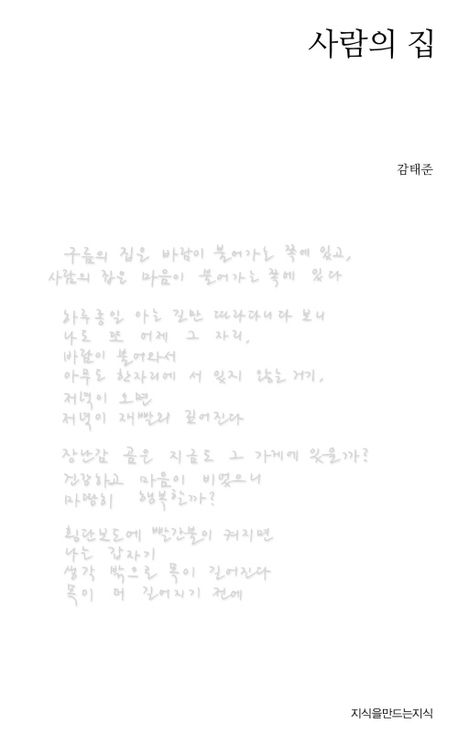 사람의 집
감태준
구름의 집은 바람이 불어가는 쪽에 있고,
사람의 집은 마음이 불어가는 쪽에 있다
하루종일 아는 길만 따라다니다 보니
나도 또 어제 그 자리,
바람이 불어와서
아무도 한자리에 서 있지 않는 거기,
저녁이 오면
저녁이 재빨리 깊어진다
장난감 곰은 지금도 그 가게에 있을까?
건강하고 마음이 비었으니
마땅히 행복할까?
횡단보도에 빨간불이 켜지면
나는 갑자기
생각 밖으로 목이 길어진다
목이 더 길어지기 전에
지식을만드는지식